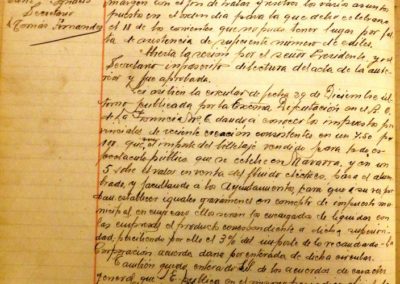 Secretario
Román Fernando
margen con el fin de tratar y resolver los varios asuntos
puestos en el orden del día para la que debió celebrarse
el 11 de los corrientes que no pudo tener lugar por falta
de asistencia de suficiente número de ediles.
Abierta la sesión por el señor Presidente, yo el
Secretario infrascrito di lectura del acta de la anterior
y fue aprobada.
circular de fecha 29 de Diciembre último
publicada por la Excma. Diputación en el B. O.
de la Provincia dando a conocer los impuestos provinciales
de reciente creación consistentes en un 7.50 por
100 el importe del billetaje vendido para todo espectáculo
público que se celebre en Navarra, y en un
5 sobre el valor en venta del fluido eléctrico para el alumbrado,
y facultando a los Ayuntamientos para que a su vez puedan
establecer iguales gravámenes en concepto de impuesto municipal
en cuyo caso ellos serán los encargados de liquidar con
las empresas el producto correspondiente a dicha superioridad
percibiendo por ello el 3% del importe de lo recaudado. La
Corporación acuerda darse por enterada de dicha circular.
También quedó enterado de los acuerdos de carácter
general que publica en el